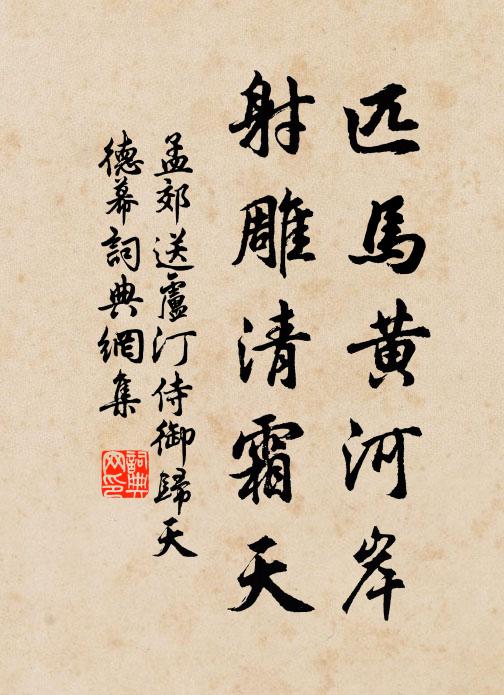 匹馬黄河岸
射雕清霜天
孟郊送盧汀侍御歸天
德幕詞典網集
詞典
网印